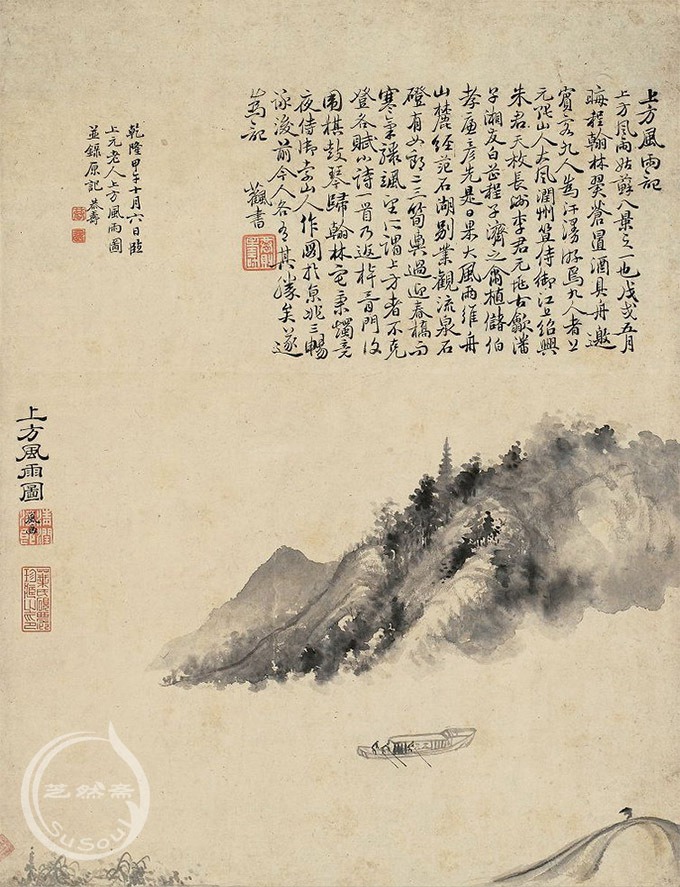 上方風雨記
上方風雨姑蘇八景之一也戊戌五月
晦程翰林翼蒼置酒具舟邀
賓客九人為汗漫游焉九人者上
元張山人大風潤州笪侍御江上紹興
朱君天枚長洲李君元地古歙潘
子湘友白芷程子濟之爾植儲伯
孝廉彥先是日果大風雨維舟
山麓經范石湖別業觀流泉石
磴有女郎二三筍輿過迎春橋而
寒氣謂上方者不克
登各賦小詩一首乃返棹胥門復
圍棋鼓琴歸翰林宅秉燭竟
夜侍御山人作圖於京兆三暢
詠後前今人各有其勝矣遂
為記
書
乾隆甲午十月六日臨
上元老人上方風雨圖
並錄原記 恭壽
上方風雨圖
芝然斋
SuSoul